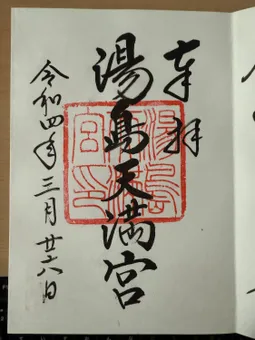 奉拝
湯島天満宮
令和四年三月廿六日